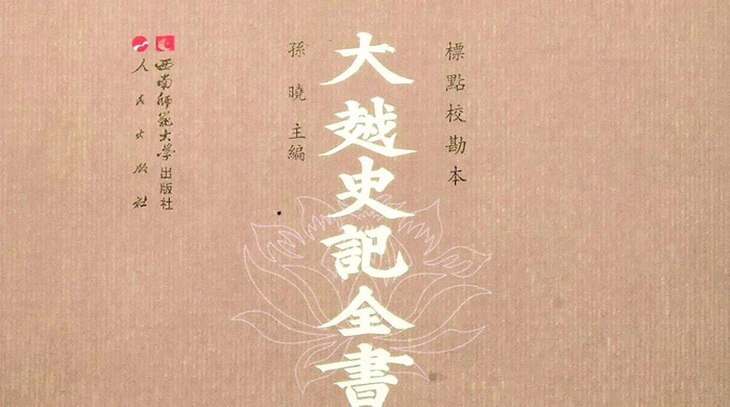 標點校勘本
大越史記全書
孫曉 主編
西南師範大學出版社
人民出版社